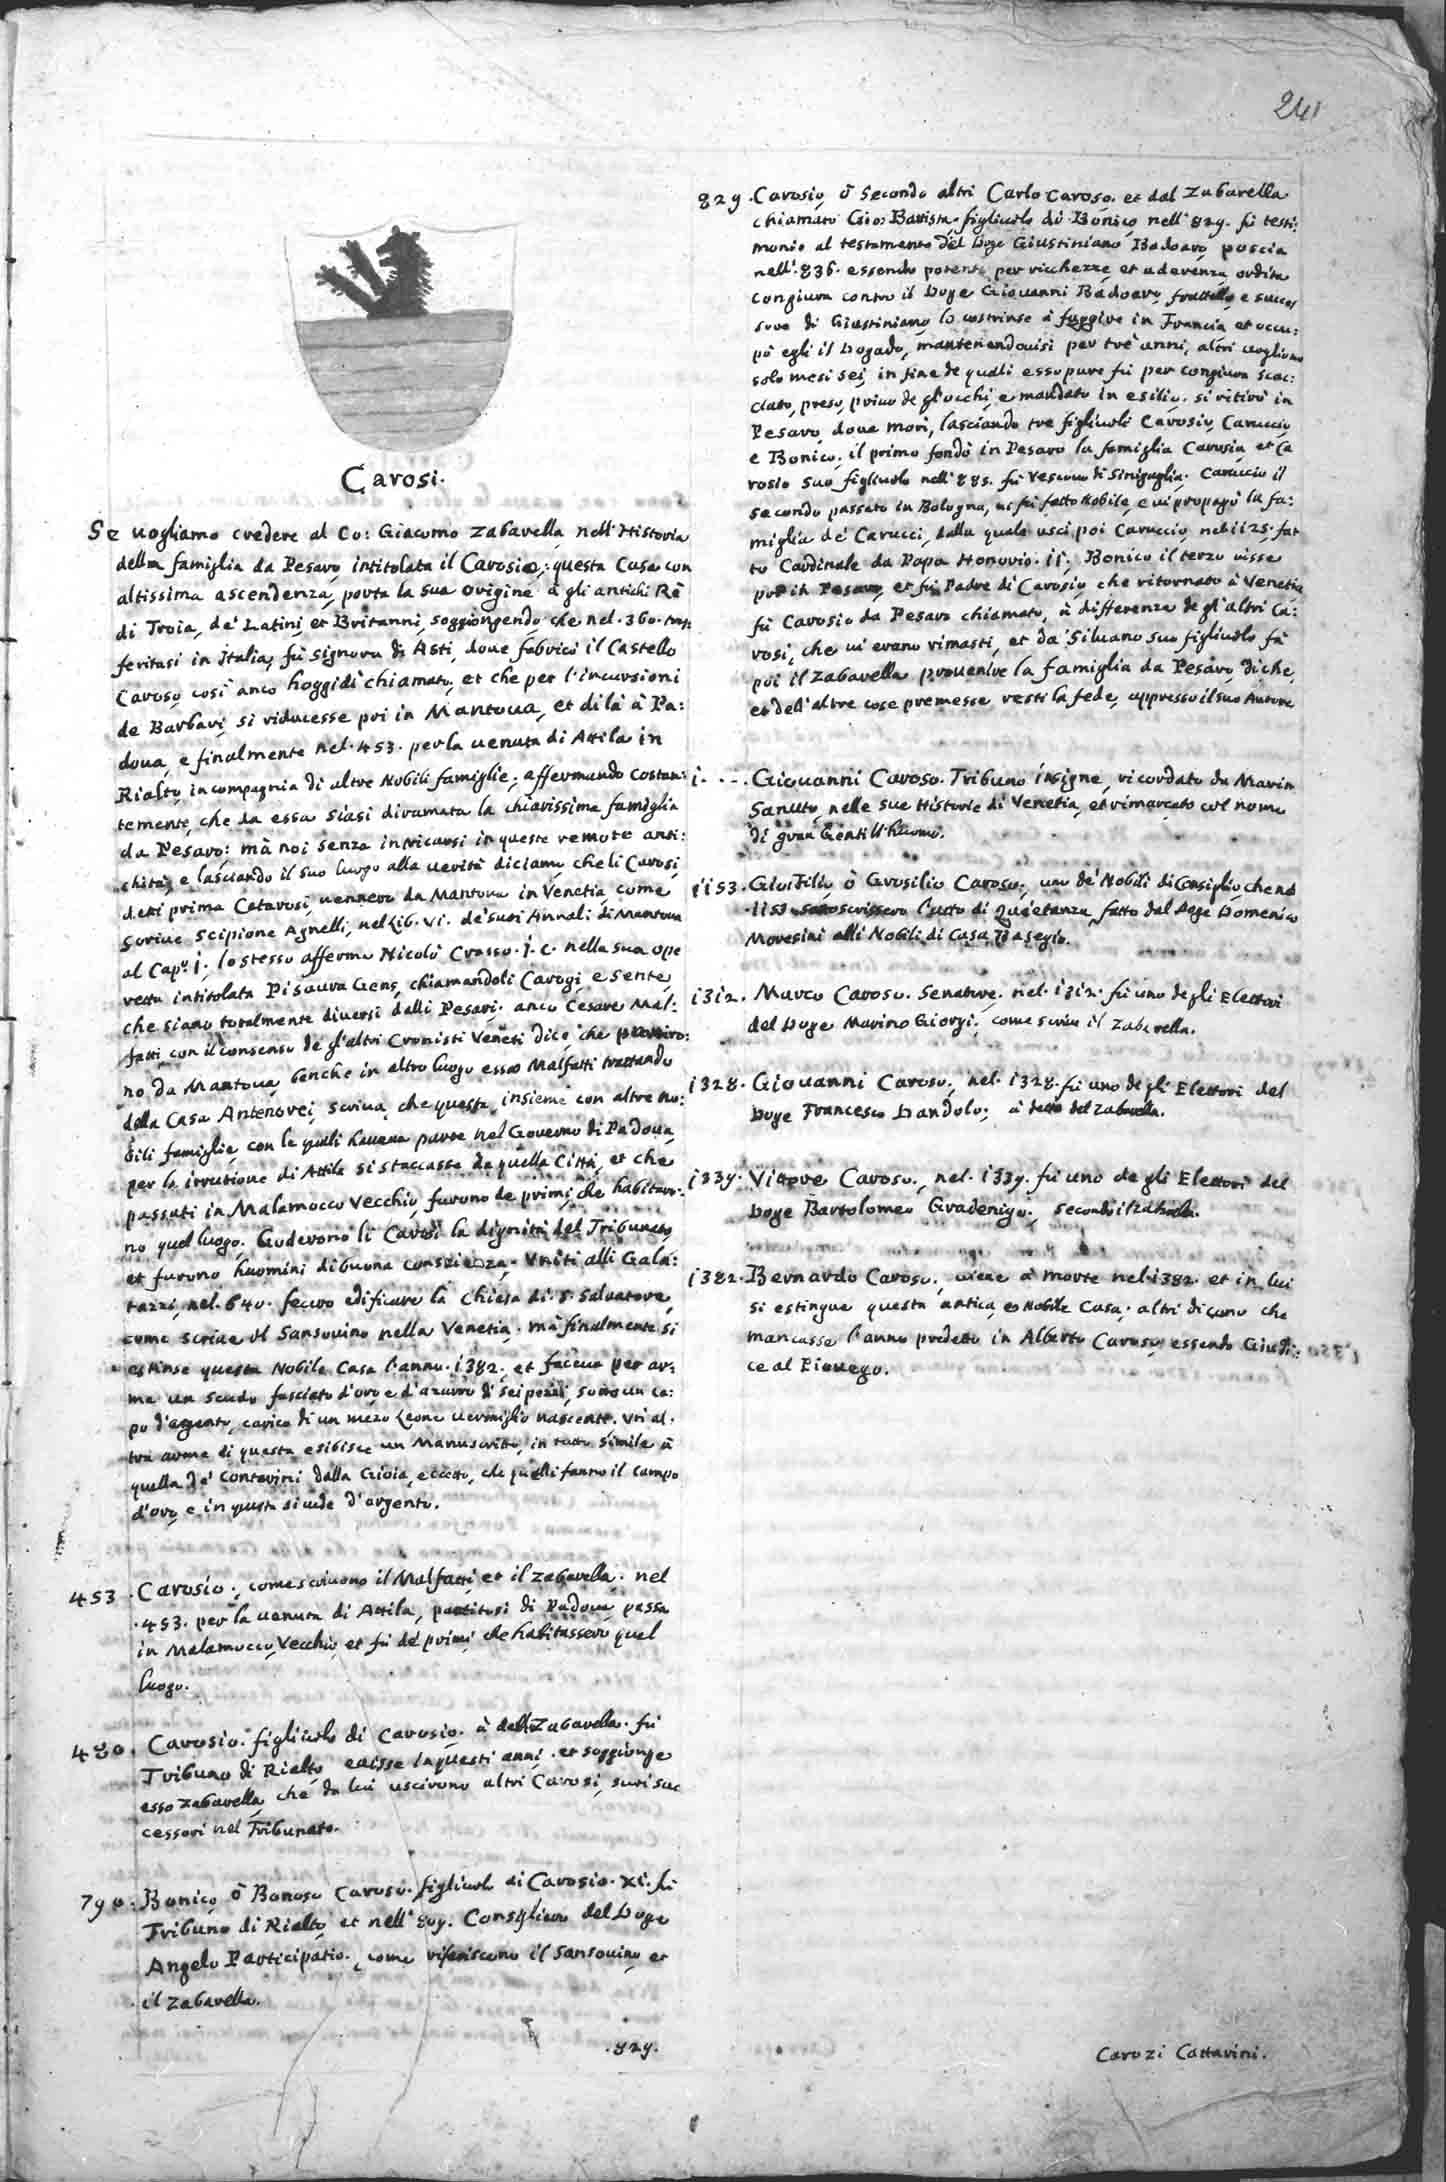 241
Carosi.
Se uogliamo credere al Co: Giacomo Zabarella, nell'Historia
della famiglia da Pesaro, intitolata il Carosio; questa Casa con
altissima ascendenza, porta la sua origine à gli antichi Rè
di Troia, de' Latini, et Britanni, soggiongendo, che nel .360. tras
feritasi in Italia, fù signora di Asti, doue fabricò il Castello
Caroso, così anco hoggidì chiamato, et che per l'incursioni
de Barbari, si riducesse poi in Mantoua, et di là à Pa:
doua, e finalmente nel .453. per la uenuta di Attila in
Rialto, in compagnia di altre Nobili famiglie; affermando costan:
temente, che da essa siasi diramata la chiarissima famiglia
da Pesaro: mà noi senza intricarsi in queste remote anti:
chità, e lasciando il suo luogo alla uerità diciamo, che li Carosi,
detti prima Catarosi, uennero da Mantoua in Venetia, come
scriue Scipione Agnelli, nel Lib. vi. de' suoi Annali di Mantoua
al Capº. i; lo stesso afferma Nicolò Crasso .i.c. nella sua ope
retta intitolata Pisaura Gens, chiamandoli Carogi, e sente,
che siano totalmente diuersi dalli Pesari. anco Cesare Mal:
fatti, con il consenso de gl'altri Cronisti Veneti dice, che partiro:
no da Mantoua, benche in altro luogo esso Malfatti trattando
della Casa Antenorei, scriua, che questa, insieme con altre No:
bili famiglie, con le quali haueua parte nel Gouerno di Padoua,
per la irrutione di Attila si staccasse da quella Città, et che
passati in Malamocco Vecchio, furono de primi, che habitaro:
no quel luogo. Goderono li Carosi la dignità del Tribunato,
et furono huomini di buona conscienza. Vniti alli Gala:
tazzi, nel .640. fecero edificare la Chiesa di .S. Saluatore,
come scriue il Sansouino nella Venetia. mà finalmente si
estinse questa Nobile Casa l'anno .1382. et faceua per ar:
ma un scudo fasciato d'oro, e d'azurro di sei pezzi, sotto un ca:
po d'argento, carico di un mezo Leone uermiglio nascente. Vn'al:
tra arma di questa esibisce un Manuscritto, in tutto simile à
quella de' Contarini dalla Gioia, eccetto, che quelli fanno il campo
d'oro, e in questa si uede d'argento.
453 . Carosio., come scriuono il Malfatti, et il Zabarella. nel
.453. per la uenuta di Attila, partitosi di Padoua, passa
in Malamocco Vecchio, et fù de' primi che habitassero quel
luogo.
480. Carosio. figliuolo di Carosio. à detto Zabarella. fù
Tribuno di Rialto, e uisse in questi anni. et soggiunge
esso Zabarella, che da lui uscirono altri Carosi, suoi suc
cessori nel Tribunato.
790. Bonico, ò Bonoso Caroso. figliuolo di Carosio .xi. fù
Tribuno di Rialto, et nell'809. Consigliero del Doge
Angelo Participatio., come riferiscono il Sansouino, et
il Zabarella.
.829.
829 . Carosio, ò secondo altri Carlo Caroso. et dal Zabarella
chiamato Gio: Battista. figliuolo di Bonico, nell'829. fù testi:
monio al testamento del Doge Giustiniano Badoaro, poscia
nell'.836. essendo potente per ricchezze, et aderenza, ordita
congiura contro il Doge Giouanni Badoaro, fratello, e succes
sore di Giustiniano, lo costrinse à fuggire in Francia, et occu:
pò egli il Dogado, mantenendouisi per trè anni, altri uogliono
solo mesi sei, in fine de quali esso pure fù per congiura scac:
ciato, preso, priuo de gl'occhi, e mandato in esilio. si ritirò in
Pesaro, doue morì, lasciando tre figliuoli Carosio, Caruccio,
e Bonico; il primo fondò in Pesaro la famiglia Carosia, et Ca
rosio suo figliuolo nell'885. fù Vescouo di Sinigaglia. Caruccio il
secondo passato in Bologna, ui fù fatto Nobile, e ui propagò la fa:
miglia de' Carucci, dalla quale uscì poi Caruccio, nel 1125. fat
to Cardinale da Papa Honorio .ii. Bonico il terzo uisse
pur in Pesaro, et fù Padre di Carosio, che ritornato à Venetia
fù Carosio da Pesaro chiamato, à differenza de gl'altri Ca:
rosi, che ui erano rimasti, et da Siluano suo figliuolo fà
poi il Zabarella prouenire la famiglia da Pesaro, di che,
et dell'altre cose premesse resti la fede, appresso il suo Autore
i.... Giouanni Caroso. Tribuno insigne, ricordato da Marin
Sanuto, nelle sue Historie di Venetia, et rimarcato col nome
di gran Gentilhuomo.
1153. Giustilio ò Grosilio Caroso., uno de' Nobili di Consiglio, che nel
.1153. sottoscrissero l'atto di quietanza, fatto dal Doge Domenico
Moresini alli Nobili di Casa Basegio.
1312. Marco Caroso. Senatore, nel .1312. fù uno de gli Elettori
del Doge Marino Giorgi; come scriue il Zabarella.
1328. Giouanni Caroso., nel .1328. fù uno de gli Elettori del
Doge Francesco Dandolo; à detto del Zabarella.
1339. Vittore Caroso., nel .1339. fù uno de gli Elettori del
Doge Bartolomeo Gradenigo., secondo il Zabarella.
1382. Bernardo Caroso., uiene à morte nel .1382. et in lui
si estingue questa antica, et Nobile Casa; altri dicono che
mancasse l'anno predetto in Alberto Caroso, essendo Giudi:
ce al Piouego.
Carozi Cattarini.